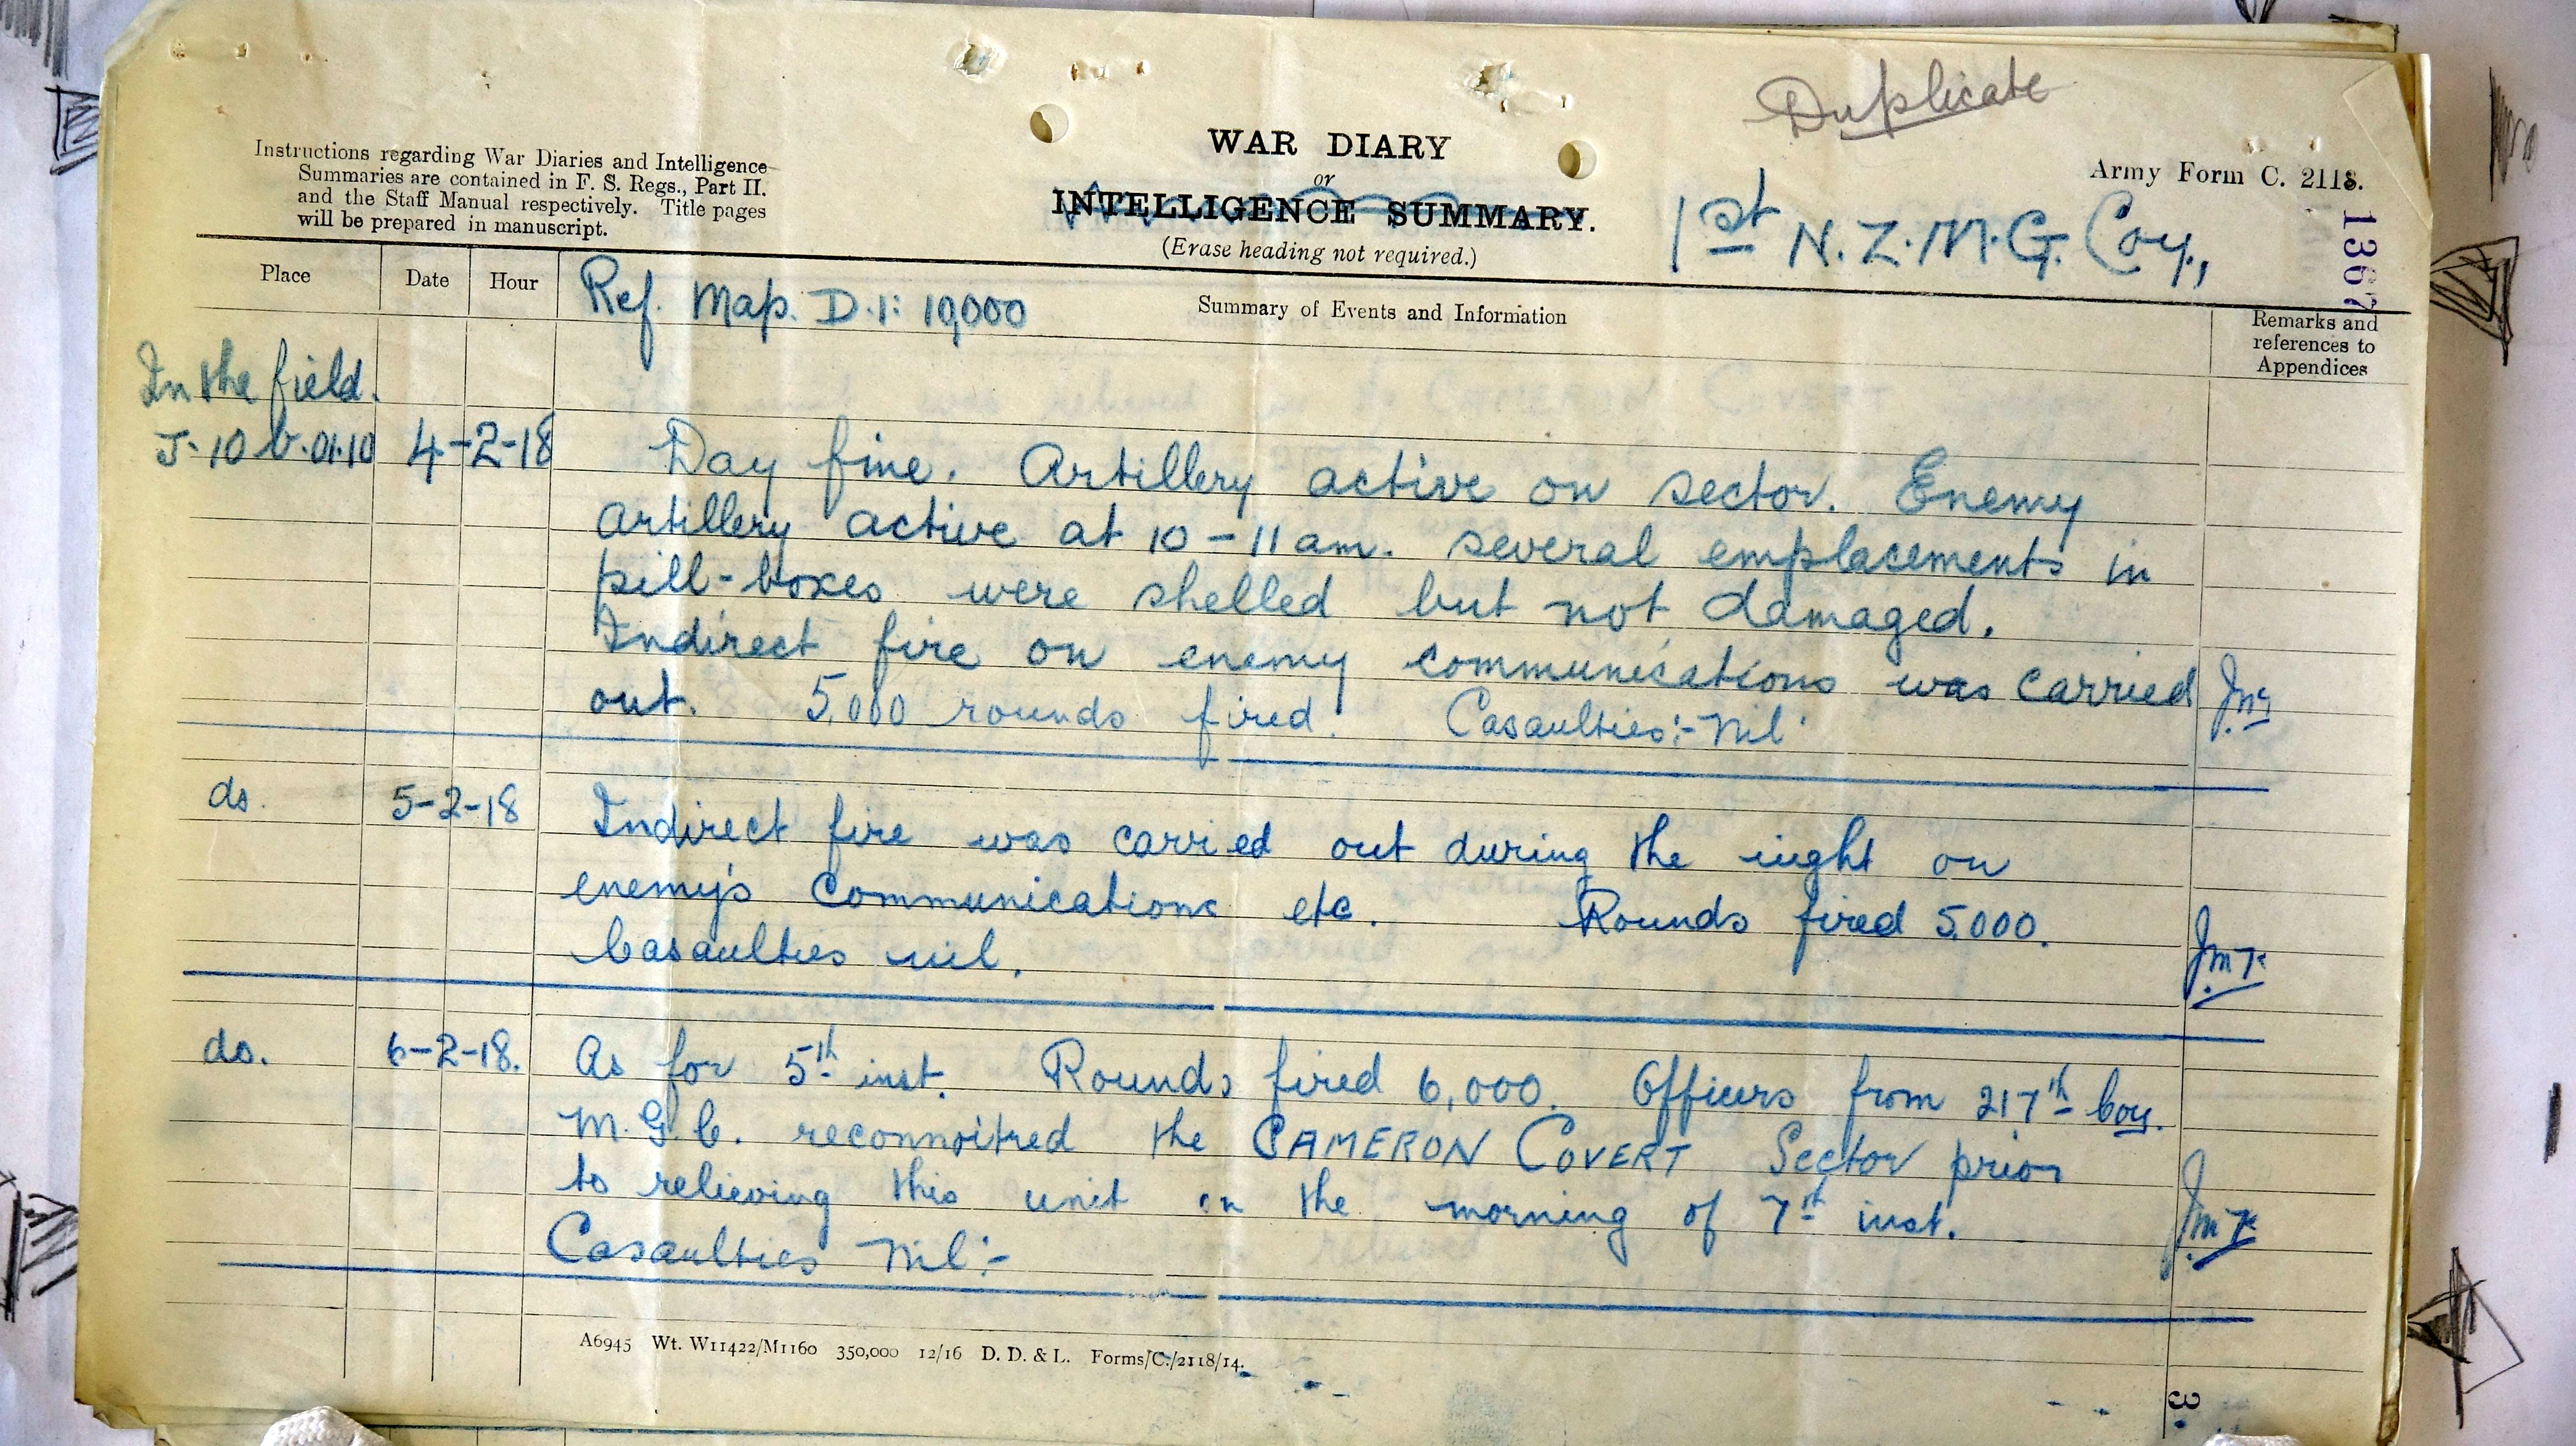 Duplicate
Instructions regarding War Diaries and Intelligence
Summaries are contained in F. S. Regs., Part II.
and the Staff Manual respectively. Title pages
will be prepared in manuscript.
WAR DIARY
or
INTELLIGENCE SUMMARY.
(Erase heading not required.)
Army Form C. 2118.
1st N.Z.M.G. Coy.,
1367
Place Date Hour
Ref. Map. D.1: 10,000
Summary of Events and Information
Remarks and
references to
Appendices
In the field.
J.10 b.01.10 4-2-18 Day fine. Artillery active on sector. Enemy
artillery active at 10-11 am. several emplacements in
pill-boxes were shelled but not damaged.
Indirect fire on enemy communications was carried
out. 5,000 rounds fired. Casaulties:- Nil
do. 5-2-18 Indirect fire was carried out during the night on
enemy's communications etc. Rounds fired 5,000.
Casaulties nil.
do. 6-2-18. As for 5th inst. Rounds fired 6,000. Officers from 217th Coy.
M.G.C. reconnoitred the CAMERON COVERT Sector prior
to relieving this unit on the morning of 7th inst.
Casaulties Nil:-
A6945 Wt. W11422/M1160 350,000 12/16 D. D. & L. Forms/C./2118/14.
3